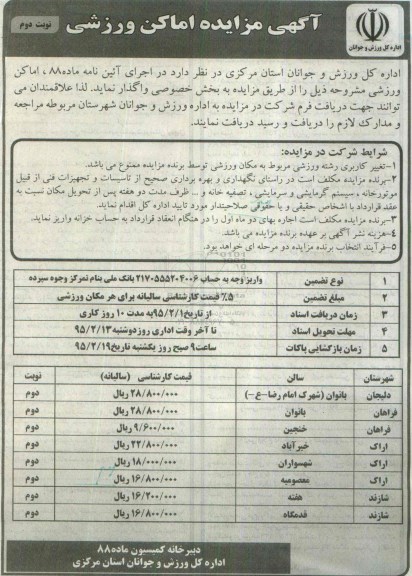 آگهی مزایده اماکن ورزشی
نوبت دوم
اداره کل ورزش و جوانان
اداره کل ورزش و جوانان استان مرکزی در نظر دارد در اجرای آئین نامه ماده۸۸ ، اماکن
ورزشی مشروحه ذیل را از طریق مزایده به بخش خصوصی واگذار نماید. لذا علاقمندان می
توانند جهت دریافت فرم شرکت در مزایده به اداره ورزش و جوانان شهرستان مربوطه مراجعه
و مدارک لازم را دریافت و رسید دریافت نمایند.
شرایط شرکت در مزایده:
۱-تغییر کاربری رشته ورزشی مربوط به مکان ورزشی توسط برنده مزایده ممنوع می باشد.
۲-برنده مزایده مکلف است در راستای نگهداری و بهره برداری صحیح از تاسیسات و تجهیزات فنی از قبیل
موتورخانه ، سیستم گرمایشی و سرمایشی ، تصفیه خانه و .. ظرف مدت دو هفته پس از تحویل مکان نسبت به
عقد قرارداد با اشخاص حقیقی و یا حقوقی صلاحیتدار مورد تایید اداره کل اقدام نماید.
۳-برنده مزایده مکلف است اجاره بهای دو ماه اول را در هنگام انعقاد قرارداد به حساب خزانه واریز نماید.
۴-هزینه نشر آگهی بر عهده برنده مزایده می باشد.
۵-فرآیند انتخاب برنده مزایده دو مرحله ای خواهد بود.
۱ نوع تضمین واریز وجه به حساب ۲۱۷۰۵۵۵۲۰۴۰۰۶ بانک ملی بنام تمرکز وجوه سپرده
۲ مبلغ تضمین ۵٪ قیمت کارشناسی سالیانه برای هر مکان ورزشی
۳ زمان دریافت اسناد از تاریخ ۹۵/۲/۱ به مدت ۱۰ روز کاری
۴ مهلت تحویل اسناد تا آخر وقت اداری روز دوشنبه ۹۵/۲/۱۳
۵ زمان بازگشایی پاکات ساعت ۹ صبح روز یکشنبه تاریخ ۹۵/۲/۱۹
شهرستان سالن قیمت کارشناسی (سالیانه) نوبت
دلیجان بانوان (شهرک امام رضا-ع-) ۲۸/۸۰۰/۰۰۰ ریال دوم
فراهان بانوان ۲۸/۸۰۰/۰۰۰ ریال دوم
فراهان خنجین ۹/۶۰۰/۰۰۰ ریال دوم
اراک خیرآباد ۲۲/۸۰۰/۰۰۰ ریال دوم
اراک شهسواران ۱۸/۰۰۰/۰۰۰ ریال دوم
اراک معصومیه ۱۶/۸۰۰/۰۰۰ ریال دوم
شازند هفته ۱۶/۲۰۰/۰۰۰ ریال دوم
شازند قدمگاه ۱۶/۸۰۰/۰۰۰ ریال دوم
دبیرخانه کمیسیون ماده۸۸
اداره کل ورزش و جوانان استان مرکزی